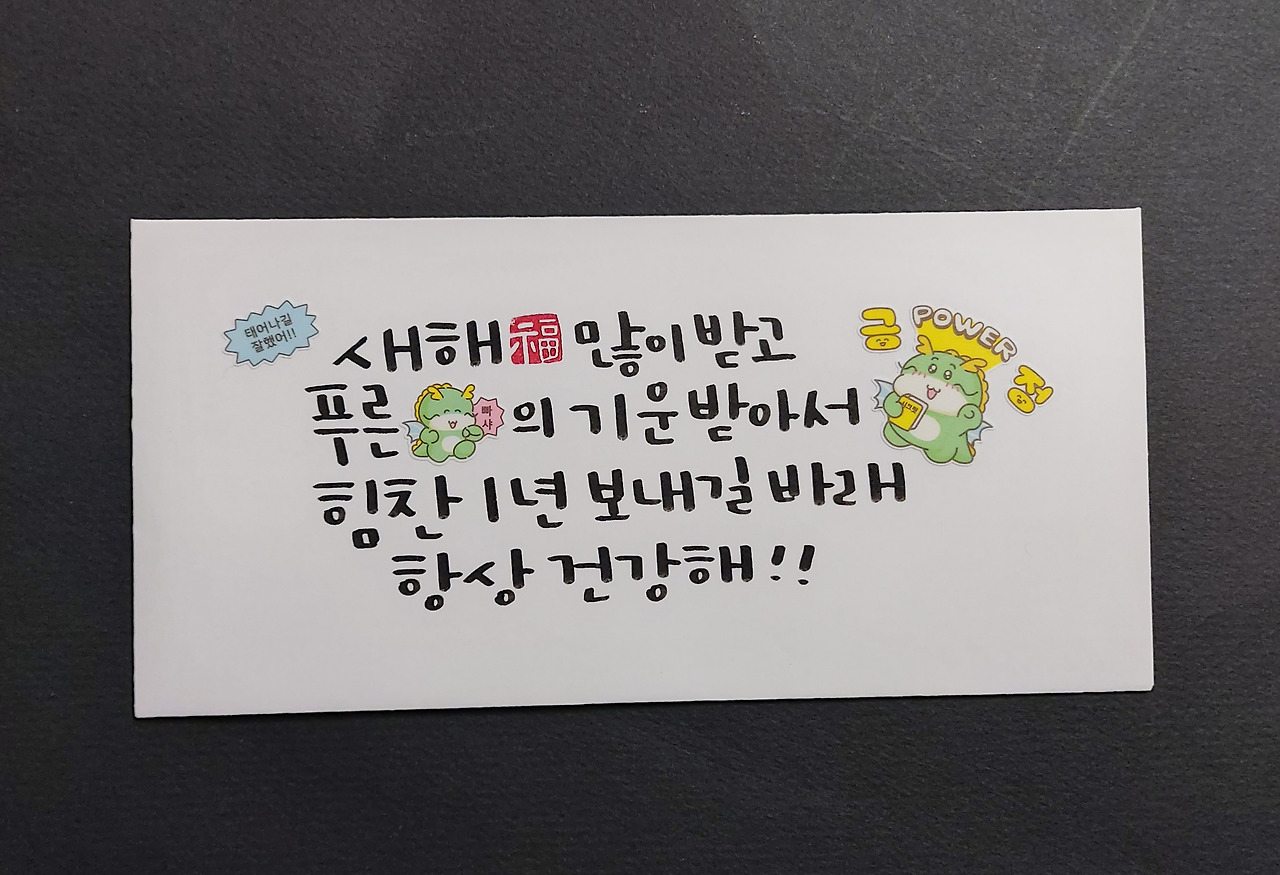 태어나길
잘했어!!
새해 福 많이 받고
금 POWER 정
푸른 의 기운 받아서
빠샤
힘찬 1년 보내길 바래
항상 건강해!!